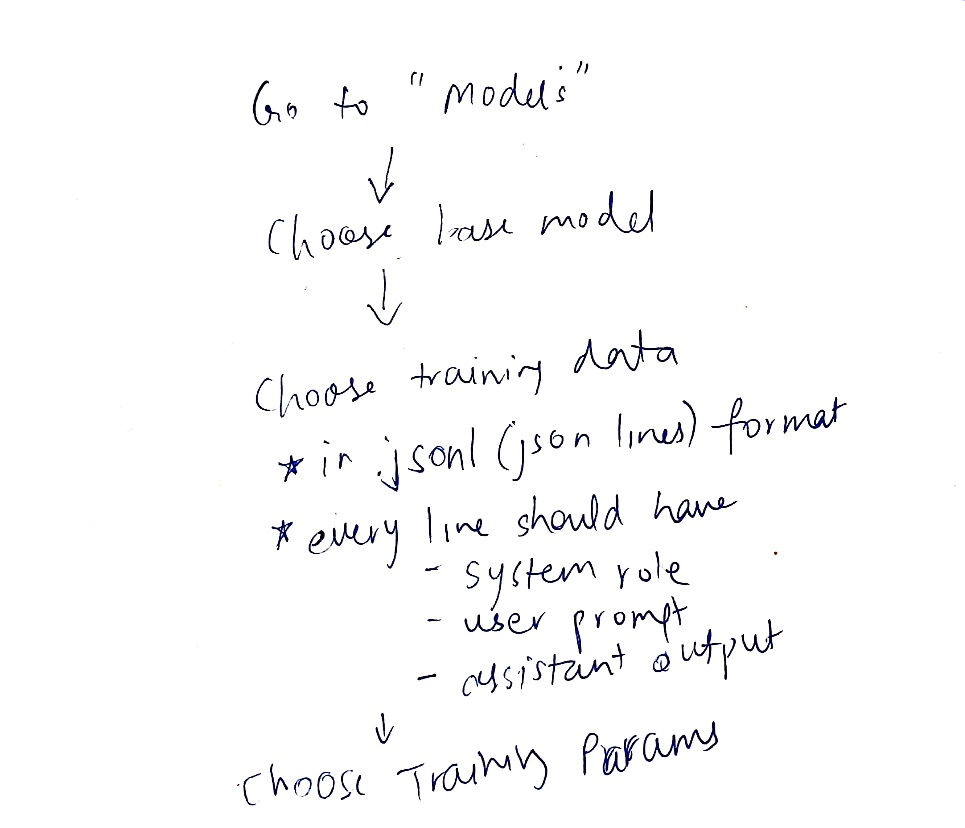 Go to "models"
↓
Choose base model
↓
Choose training data
* in .jsonl (json lines) format
* every line should have
- system role
- user prompt
- assistant output
↓
Choose Training Params